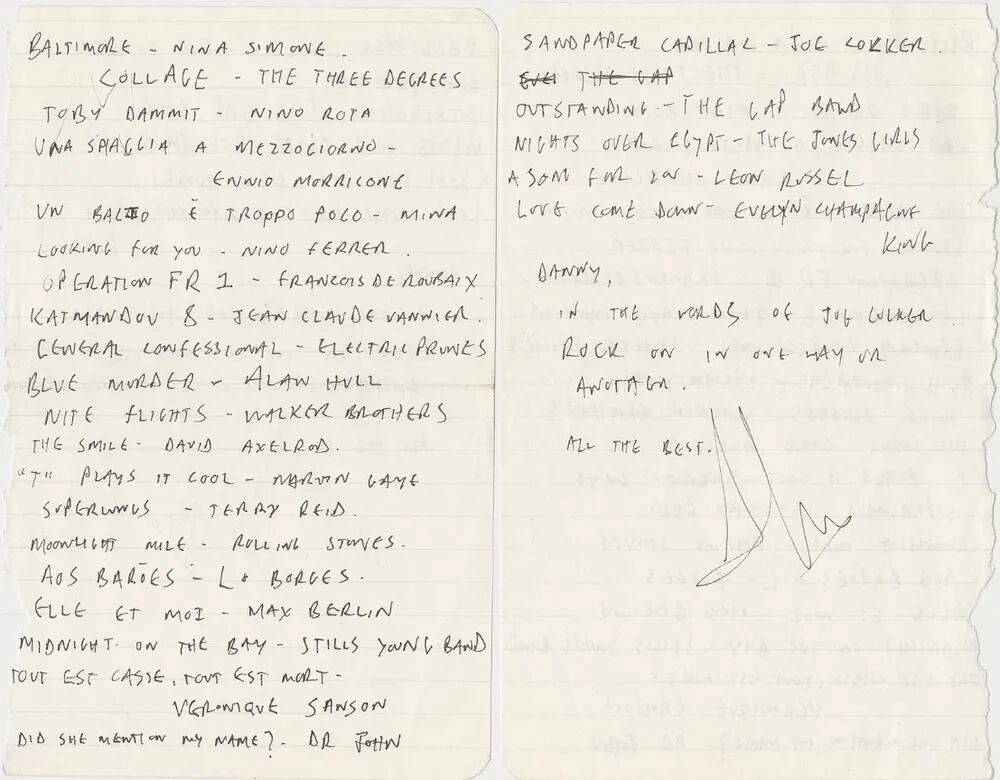 BALTIMORE - NINA SIMONE.
COLLAGE - THE THREE DEGREES
TOBY DAMMIT - NINO ROTA
UNA SPAGGIA A MEZZOGIORNO -
ENNIO MORRICONE
UN BACIO È TROPPO POCO - MINA
LOOKING FOR YOU - NINO FERRER.
OPERATION FR 1 - FRANCOIS DE ROUBAIX
KATMANDOU 8 - JEAN CLAUDE VANNIER.
GENERAL CONFESSIONAL - ELECTRIC PRUNES
BLUE MURDER - ALAN HULL
NITE FLIGHTS - WALKER BROTHERS
THE SMILE - DAVID AXELROD.
"T" PLAYS IT COOL - MARVIN GAYE
SUPERLUNGS - TERRY REID.
MOONLIGHT MILE - ROLLING STONES.
AOS BARÕES - LO BORGES.
ELLE ET MOI - MAX BERLIN
MIDNIGHT ON THE BAY - STILLS YOUNG BAND
TOUT EST CASSE, TOUT EST MORT -
VERONIQUE SANSON
DID SHE MENTION MY NAME? - DR JOHN
SANDPAPER CADILLAC - JOE COCKER.
THE GAP
OUTSTANDING - THE GAP BAND
NIGHTS OVER EGYPT - THE JONES GIRLS
A SONG FOR YOU - LEON RUSSEL
LOVE COME DOWN - EVELYN CHAMPAGNE
KING
DANNY,
IN THE WORDS OF JOE COCKER
ROCK ON IN ONE WAY OR
ANOTHER.
ALL THE BEST.